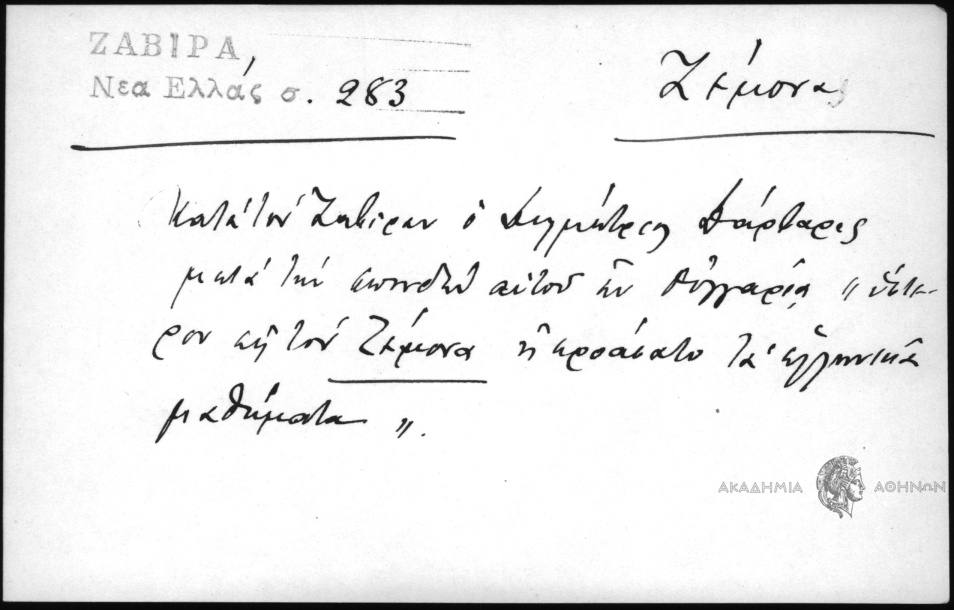 ΖΑΒΙΡΑ,
Νεα Ελλάς σ. 283
Ζέμονα
Κατά τον Ζαβίραν ὁ Δημήτριος Δάρβαρις
μετά την σπουδήν αυτού εν Ρουγγαρία " ύστε-
ρον εις τον Ζέμονα ηκροάσατο τα ελληνικά
μαθήματα ".
ΑΚΑΔΗΜΙΑ ΑΘΗΝΩΝ